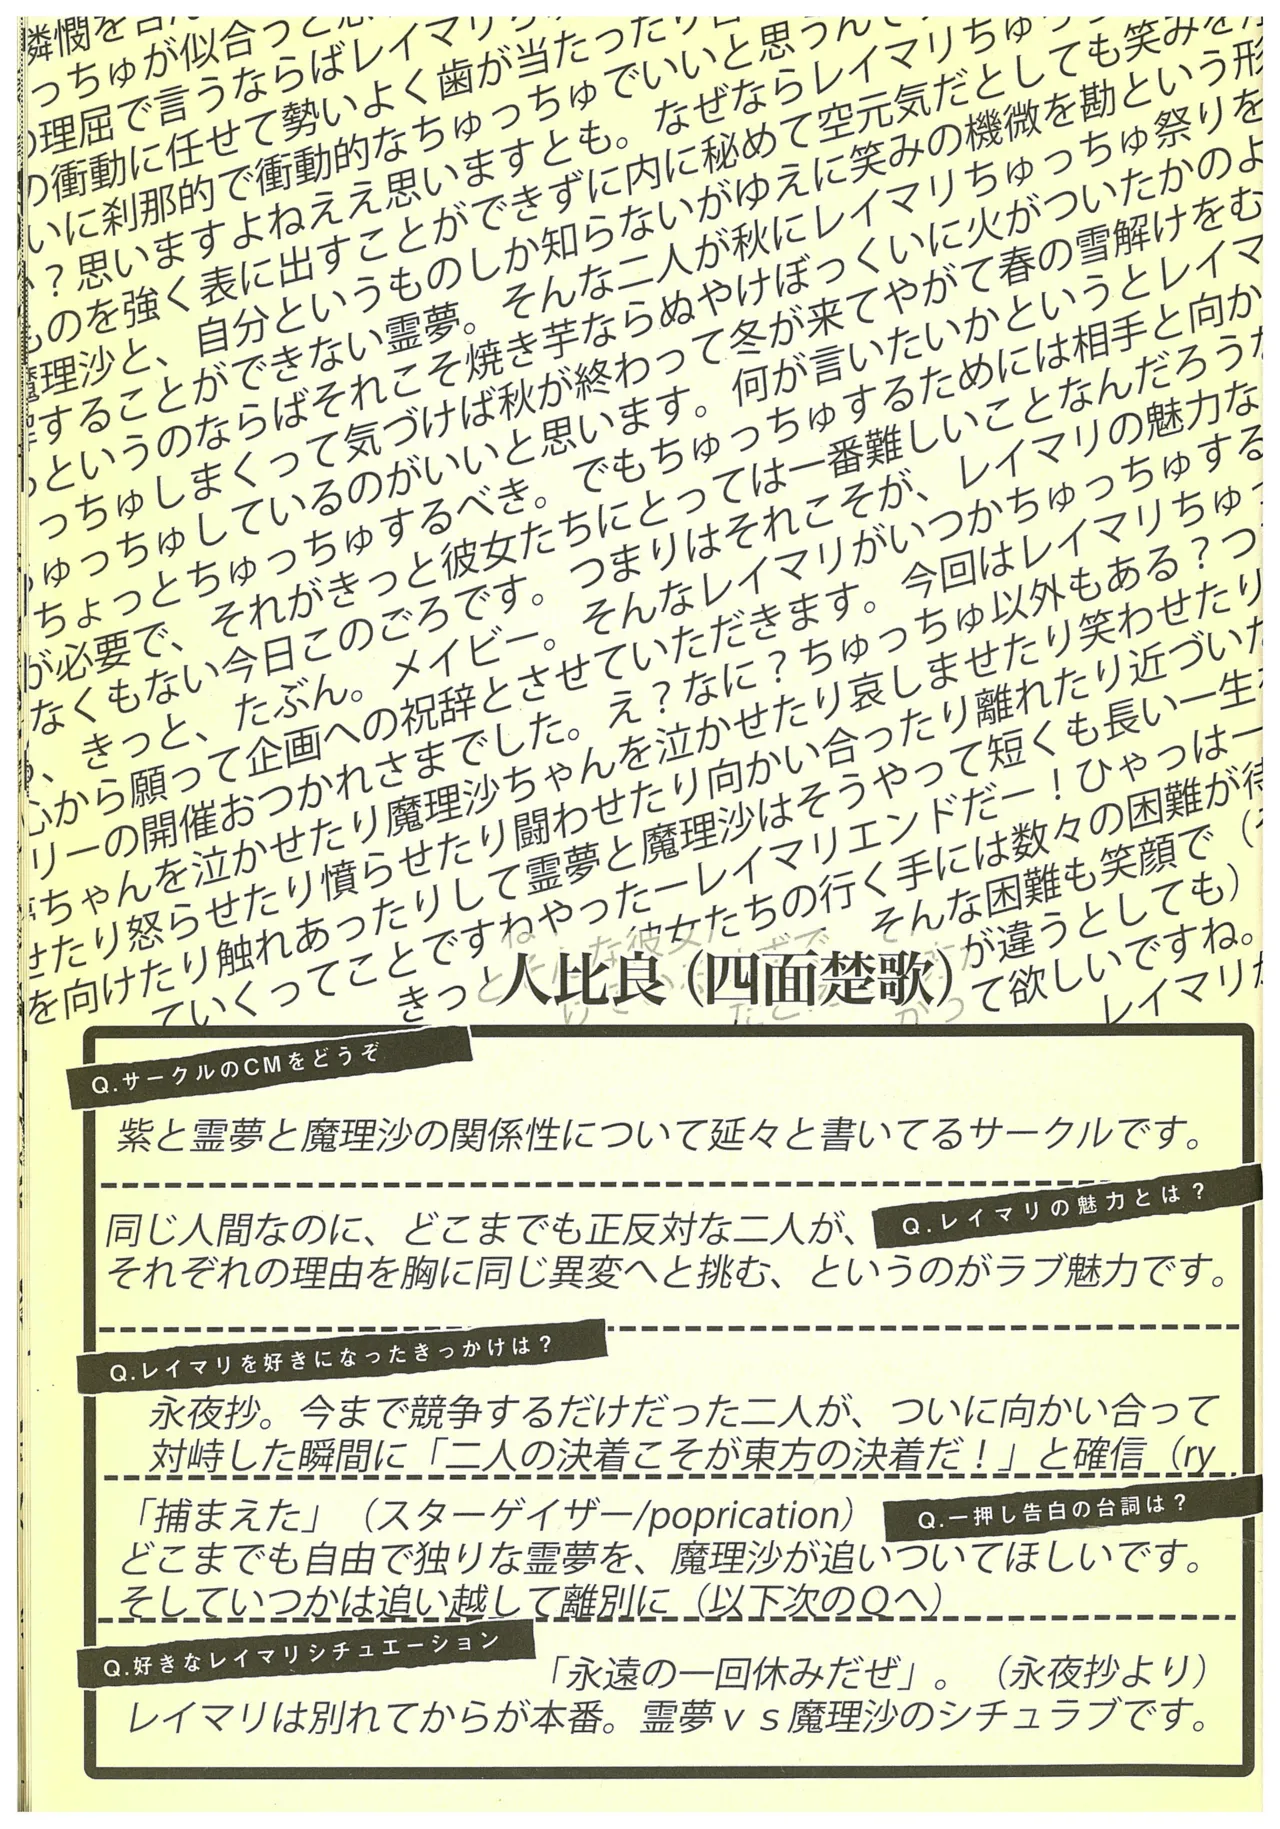 っちゅが似合っと思
の理屈で言うならばレイマリち
の衝動に任せて勢いよく歯が当たったり
いに刹那的で衝動的なちゅっちゅでいいと思うんで
？思いますよねええ思いますとも。なぜならレイマリちゅっ
ものを強く表に出すことができずに内に秘めて空元気だとしても笑みを
魔理沙と、自分というものしか知らないがゆえに笑みの機微を勘という形
することができない霊夢。そんな二人が秋にレイマリちゅっちゅ祭りを
というのならばそれこそ焼き芋ならぬやけぼっくいに火がついたかのよ
っちゅしまくって気づけば秋が終わって冬が来てやがて春の雪解けをむ
ゅっちゅしているのがいいと思います。何が言いたいかというとレイマ
ちょっとちゅっちゅするべき。でもちゅっちゅするためには相手と向か
が必要で、それがきっと彼女たちにとっては一番難しいことなんだろうな
なくもない今日このごろです。つまりはそれこそが、レイマリの魅力な
、きっと、たぶん。メイビー。そんなレイマリがいつかちゅっちゅする
心から願って企画への祝辞とさせていただきます。今回はレイマリちゅっ
リーの開催おつかれさまでした。え？なに？ちゅっちゅ以外もある？つ
ちゃんを泣かせたり魔理沙ちゃんを泣かせたり哀しませたり笑わせたり
せたり怒らせたり憤らせたり闘わせたり向かい合ったり離れたり近づいた
を向けたり触れあったりして霊夢と魔理沙はそうやって短くも長い一生を
ていくってことですねやったーレイマリエンドだー！ひゃっはー
きっと
彼女たちの行く手には数々の困難が待
そんな困難も笑顔で（
が違うとしても）
て欲しいですね。
レイマリが
人比良（四面楚歌）
Q.サークルのCMをどうぞ
紫と霊夢と魔理沙の関係性について延々と書いてるサークルです。
Q.レイマリの魅力とは？
同じ人間なのに、どこまでも正反対な二人が、
それぞれの理由を胸に同じ異変へと挑む、というのがラブ魅力です。
Q.レイマリを好きになったきっかけは？
永夜抄。今まで競争するだけだった二人が、ついに向かい合って
対峙した瞬間に「二人の決着こそが東方の決着だ！」と確信（ry
Q.一押し告白の台詞は？
「捕まえた」（スターゲイザー/poprication）
どこまでも自由で独りな霊夢を、魔理沙が追いついてほしいです。
そしていつかは追い越して離別に（以下次のＱへ）
Q.好きなレイマリシチュエーション
「永遠の一回休みだぜ」。（永夜抄より）
レイマリは別れてからが本番。霊夢ｖｓ魔理沙のシチュラブです。